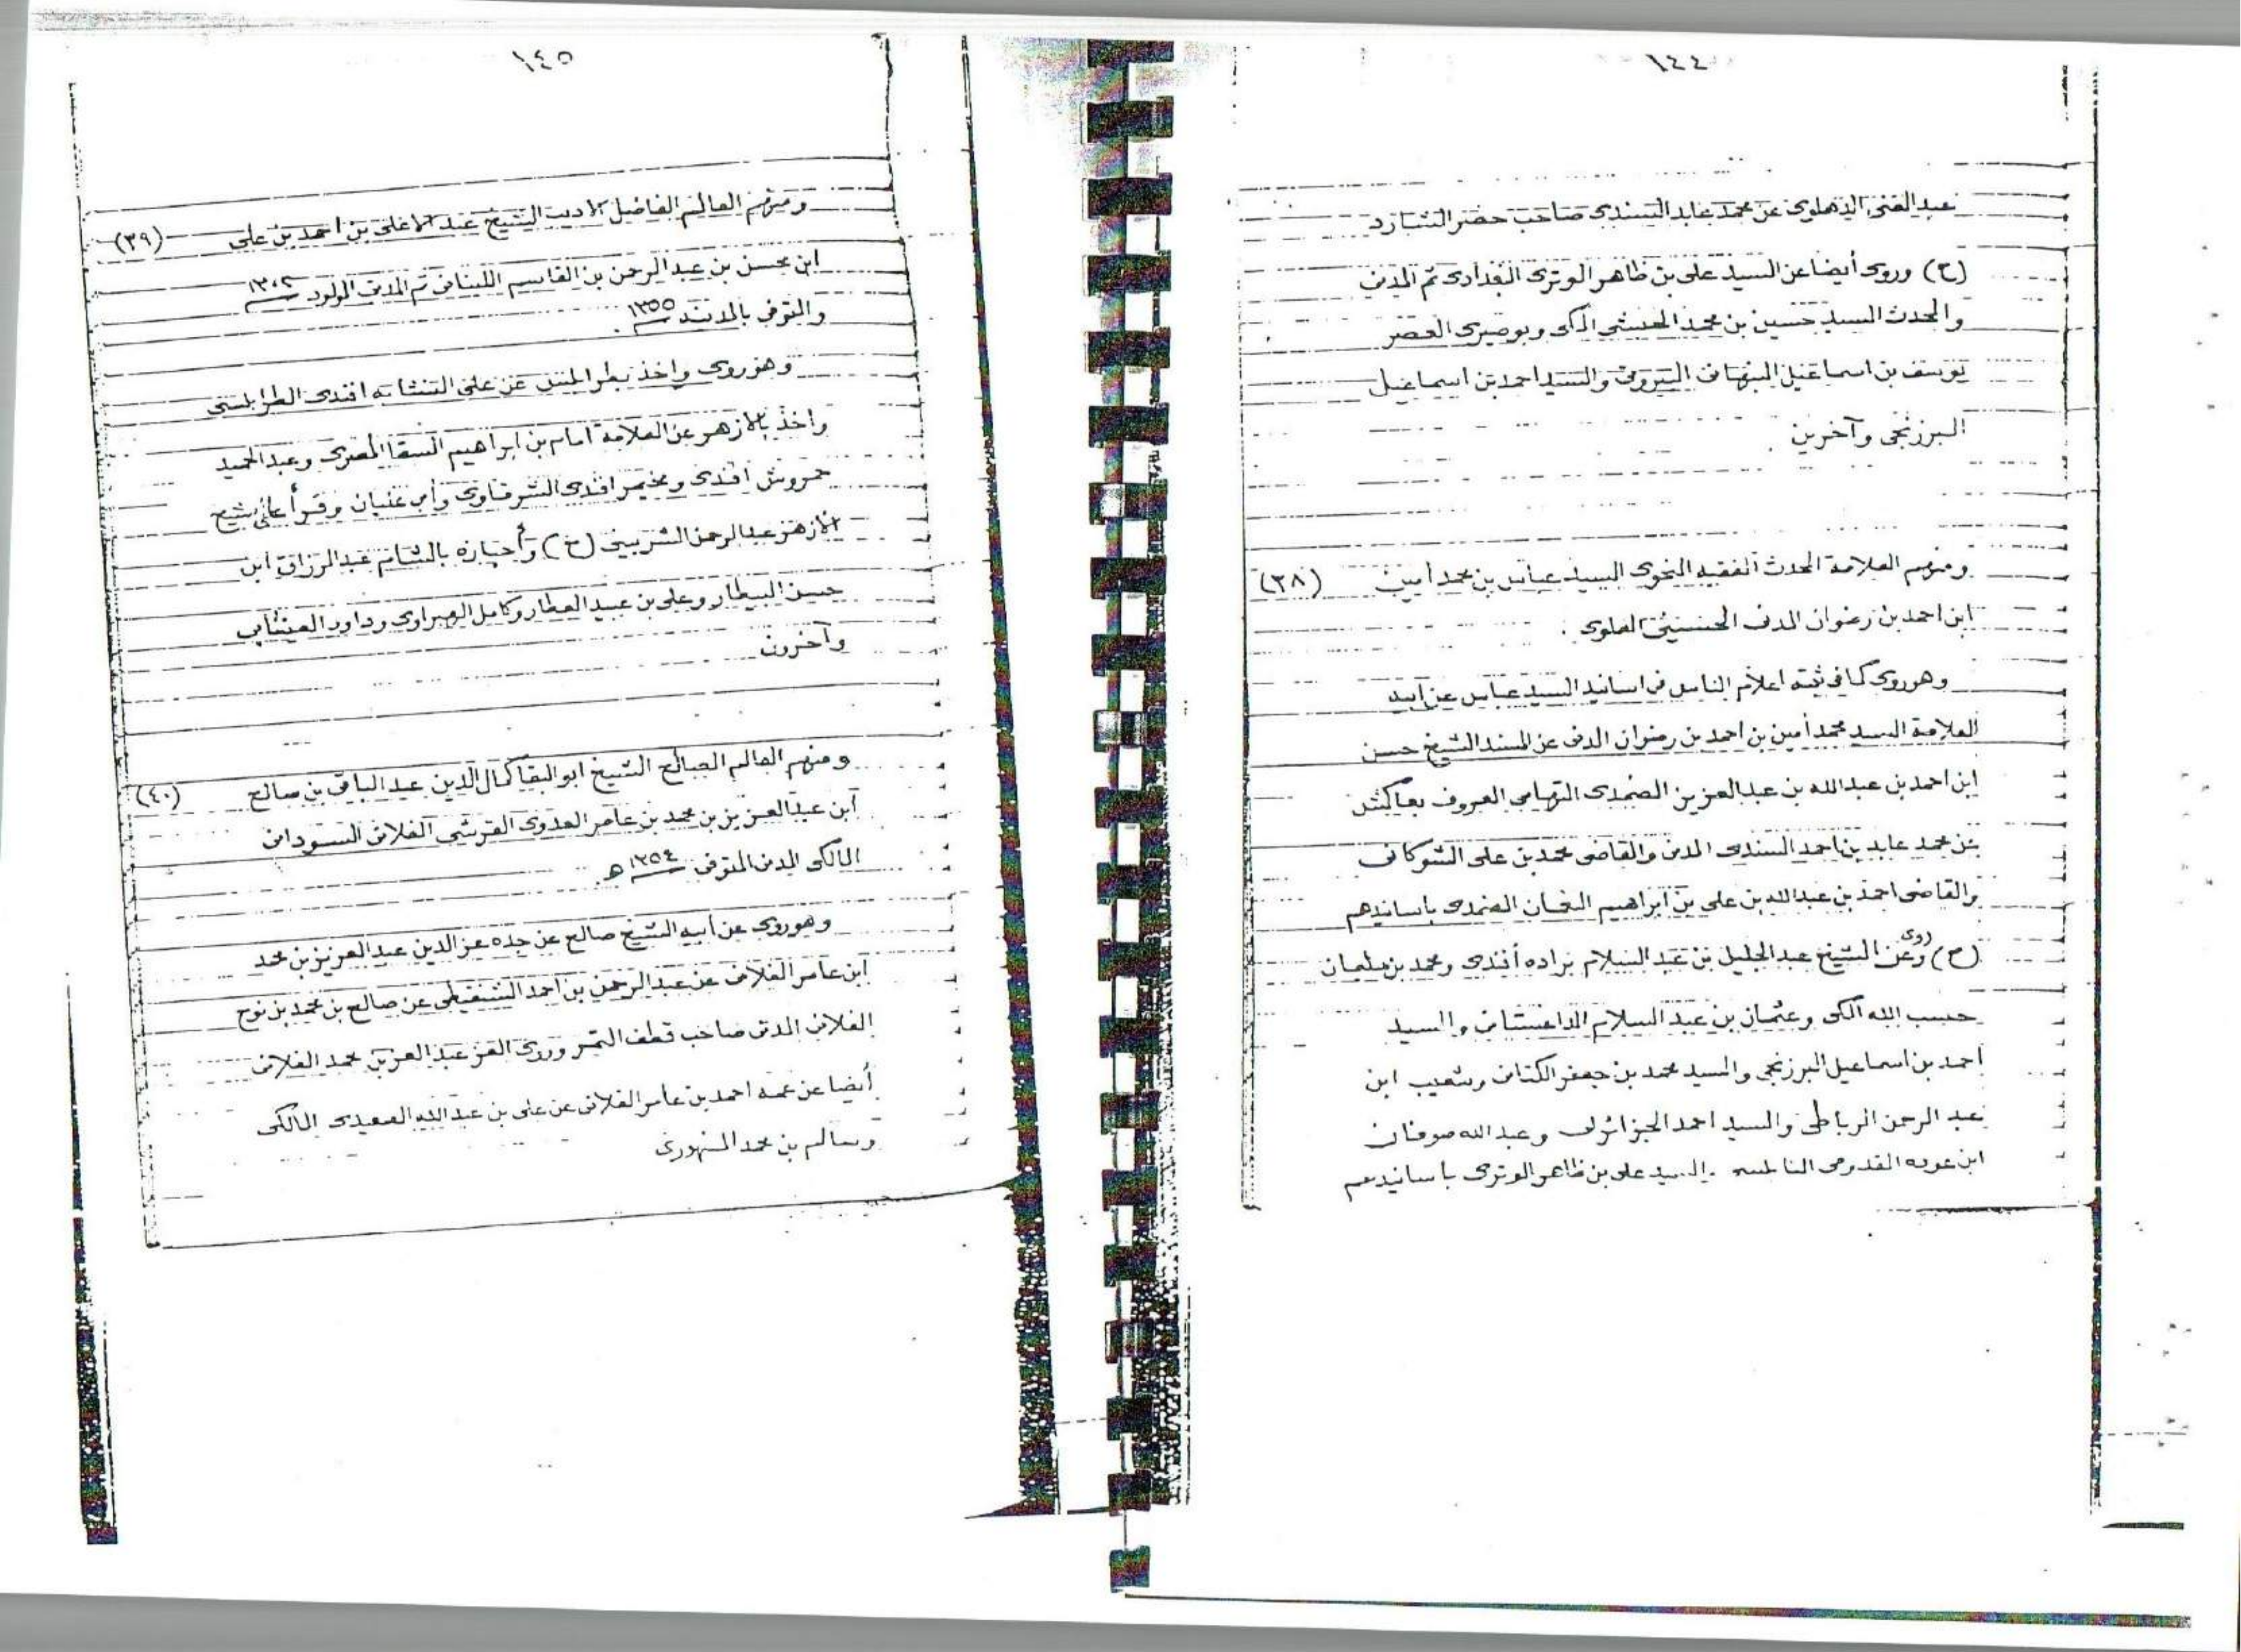 ١٤٤
عبد الغنى الدهلوى عن محمد عابد السندى صاحب حضر الشارد
(ح) وروى أيضا عن السيد على بن ظاهر الوترى البغدادى ثم المدنى
والمحدث السيد حسين بن محمد الحبشى المكى وبوصيرى العصر
يوسف بن اسماعيل النبهانى البيروتى والسيد احمد بن اسماعيل
البرزنجى وآخرين .
ومنهم العلامة المحدث الفقيه النحوى السيد عباس بن محمد أمين (٣٨)
ابن احمد بن رضوان المدنى الحسينى العلوى .
وهو روى كما فى ثبته اعلام الناس فى اسانيد السيد عباس عن ابيه
العلامة السيد محمد أمين بن احمد بن رضوان المدنى عن المسند الشيخ حسن
ابن احمد بن عبد الله بن عبد العزيز الضمدى التهامى المعروف بعاكش
عن محمد عابد بن احمد السندى المدنى والقاضى محمد بن على الشوكانى
والقاضى احمد بن عبد الله بن على بن ابراهيم النعمان الضمدى باسانيدهم
(ح) وروى عن الشيخ عبد الجليل بن عبد السلام براده أفندى ومحمد بن سلمان
حسب الله المكى وعثمان بن عبد السلام الداغستانى والسيد
احمد بن اسماعيل البرزنجى والسيد محمد بن جعفر الكتانى وشعيب ابن
عبد الرحمن الرباطى والسيد احمد الجزائرلى وعبد الله صوفان
ابن عوده القدومى النابلسى والسيد على بن ظاهر الوترى باسانيدهم
١٤٥
ومنهم العالم الفاضل الاديب الشيخ عبد الاعلى بن احمد بن على (٣٩)
ابن محسن بن عبد الرحمن بن القاسم اللبنانى ثم المدنى المولود ١٣٠٢
والمتوفى بالمدينة ١٣٥٥ .
وهو روى واخذ بطرابلس عن على النشابه افندى الطرابلسى
واخذ بالازهر عن العلامة امام بن ابراهيم السقا المصرى وعبد الحميد
حمروش افندى ومخيمر افندى الشرقاوى وأبى عليان وقرأ على شيخ
الازهر عبد الرحمن الشربينى (ح) وأجازه بالشام عبد الرزاق ابن
حسن البيطار وعلى بن عبيد العطار وكامل الهبراوى وداود العينتابى
وآخرون
ومنهم العالم الصالح الشيخ ابو البقا كمال الدين عبد الباقى بن صالح (٤٠)
ابن عبد العزيز بن محمد بن عامر العدوى القرشى الفلانى السودانى
المالكى المدنى المتوفى ١٣٥٤ هـ
وهو روى عن أبيه الشيخ صالح عن جده عز الدين عبد العزيز بن محمد
ابن عامر الفلانى عن عبد الرحمن بن احمد الشنقيطى عن صالح بن محمد بن نوح
الفلانى المدنى صاحب قطف الثمر وروى العز عبد العزيز محمد الفلانى
أيضا عن عمه احمد بن عامر الفلانى عن على بن عبد الله الصعيدى المالكى
وسالم بن محمد السنهورى